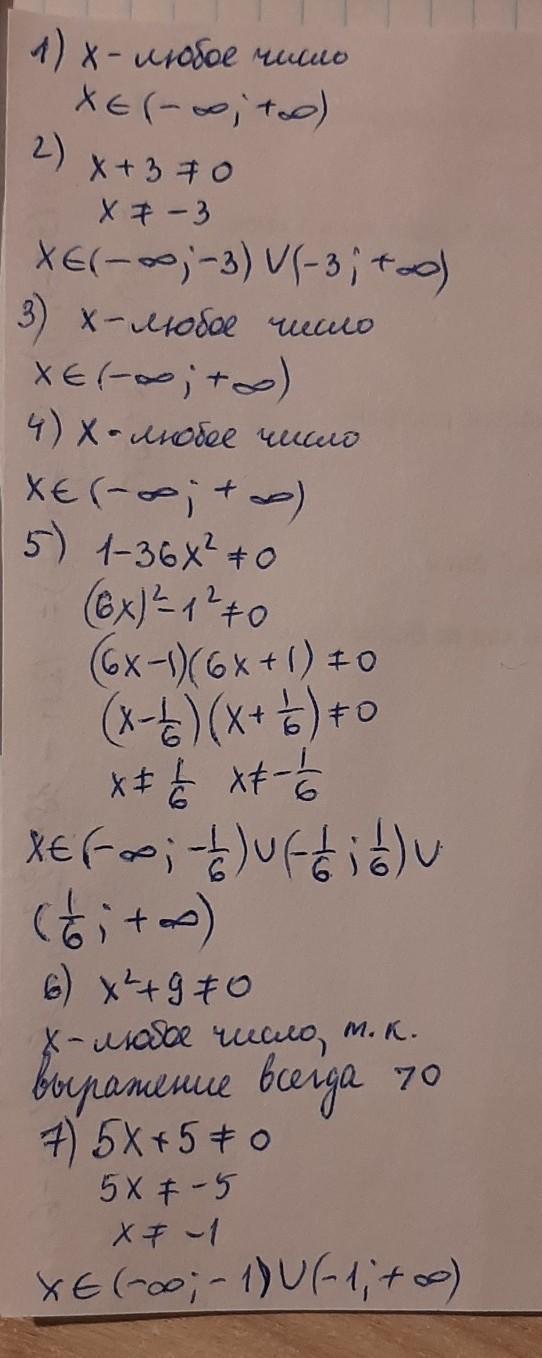 1) x - любое число
x ∈ (-∞; +∞)
2) x + 3 ≠ 0
x ≠ -3
x ∈ (-∞; -3) ∪ (-3; +∞)
3) x - любое число
x ∈ (-∞; +∞)
4) x - любое число
x ∈ (-∞; +∞)
5) 1 - 36x² ≠ 0
(6x)² - 1² ≠ 0
(6x - 1)(6x + 1) ≠ 0
(x - 1/6)(x + 1/6) ≠ 0
x ≠ 1/6 x ≠ -1/6
x ∈ (-∞; -1/6) ∪ (-1/6; 1/6) ∪
(1/6; +∞)
6) x² + 9 ≠ 0
x - любое число, т.к.
выражение всегда >0
7) 5x + 5 ≠ 0
5x ≠ -5
x ≠ -1
x ∈ (-∞; -1) ∪ (-1; +∞)